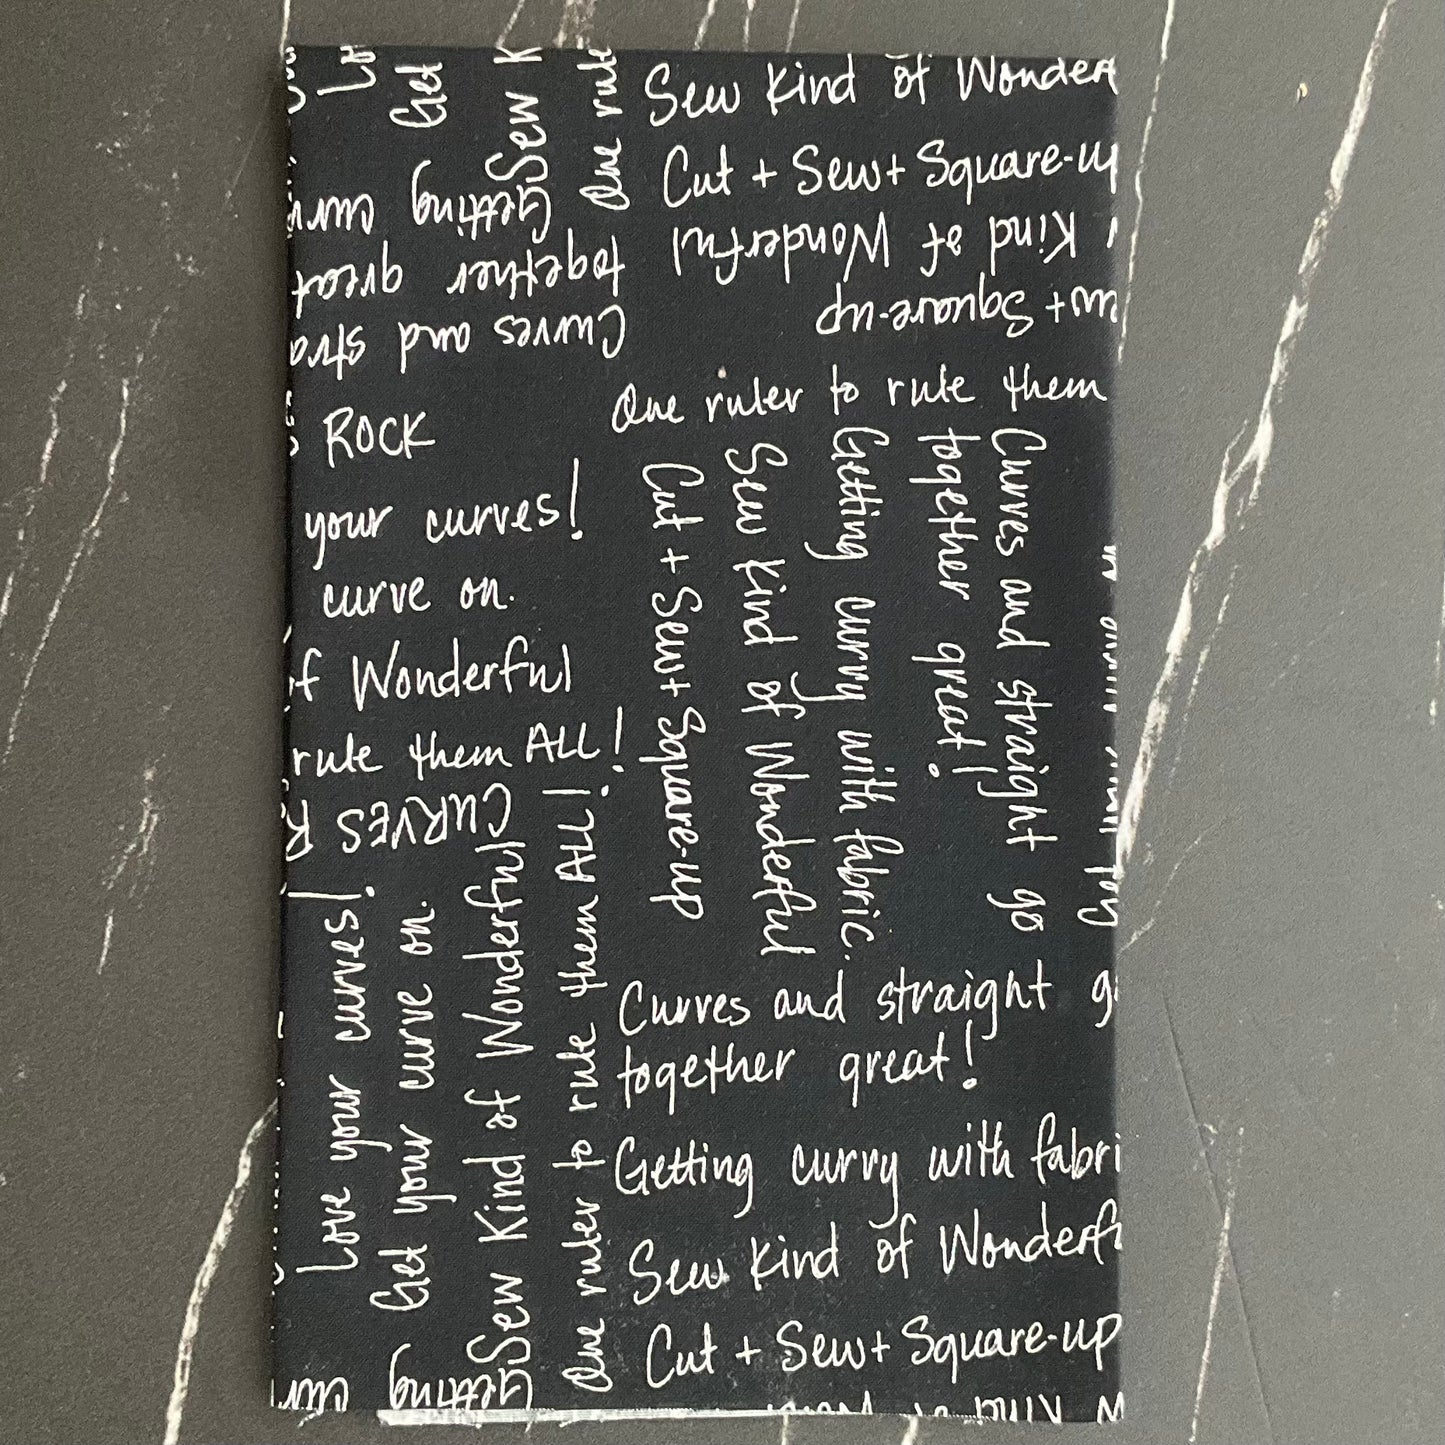 Get
Sew
One rule
Sew Kind of
Cut + Sew + Square-up
Getting
together great
Curves and
Kind of Wonderful
Square-up
ROCK
your curves!
curve on.
of Wonderful
rule them ALL!
CURVES
One ruler to rule them
Curves and straight go
together great!
Getting curvy with fabric.
Sew Kind of Wonderful
Cut + Sew + Square-up
Love your curves!
Get your curve on.
Sew Kind of Wonderful
One ruler to rule them ALL!
Curves and straight
together great!
Getting curvy with
Sew Kind of
Cut + Sew + Square-up
Getting